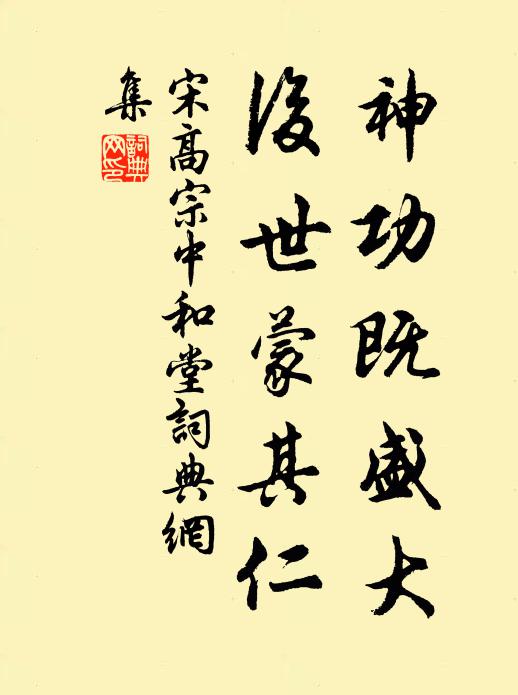 神功既盛大
後世蒙其仁
宋高宗中和堂詞典網
集
詞典
网印